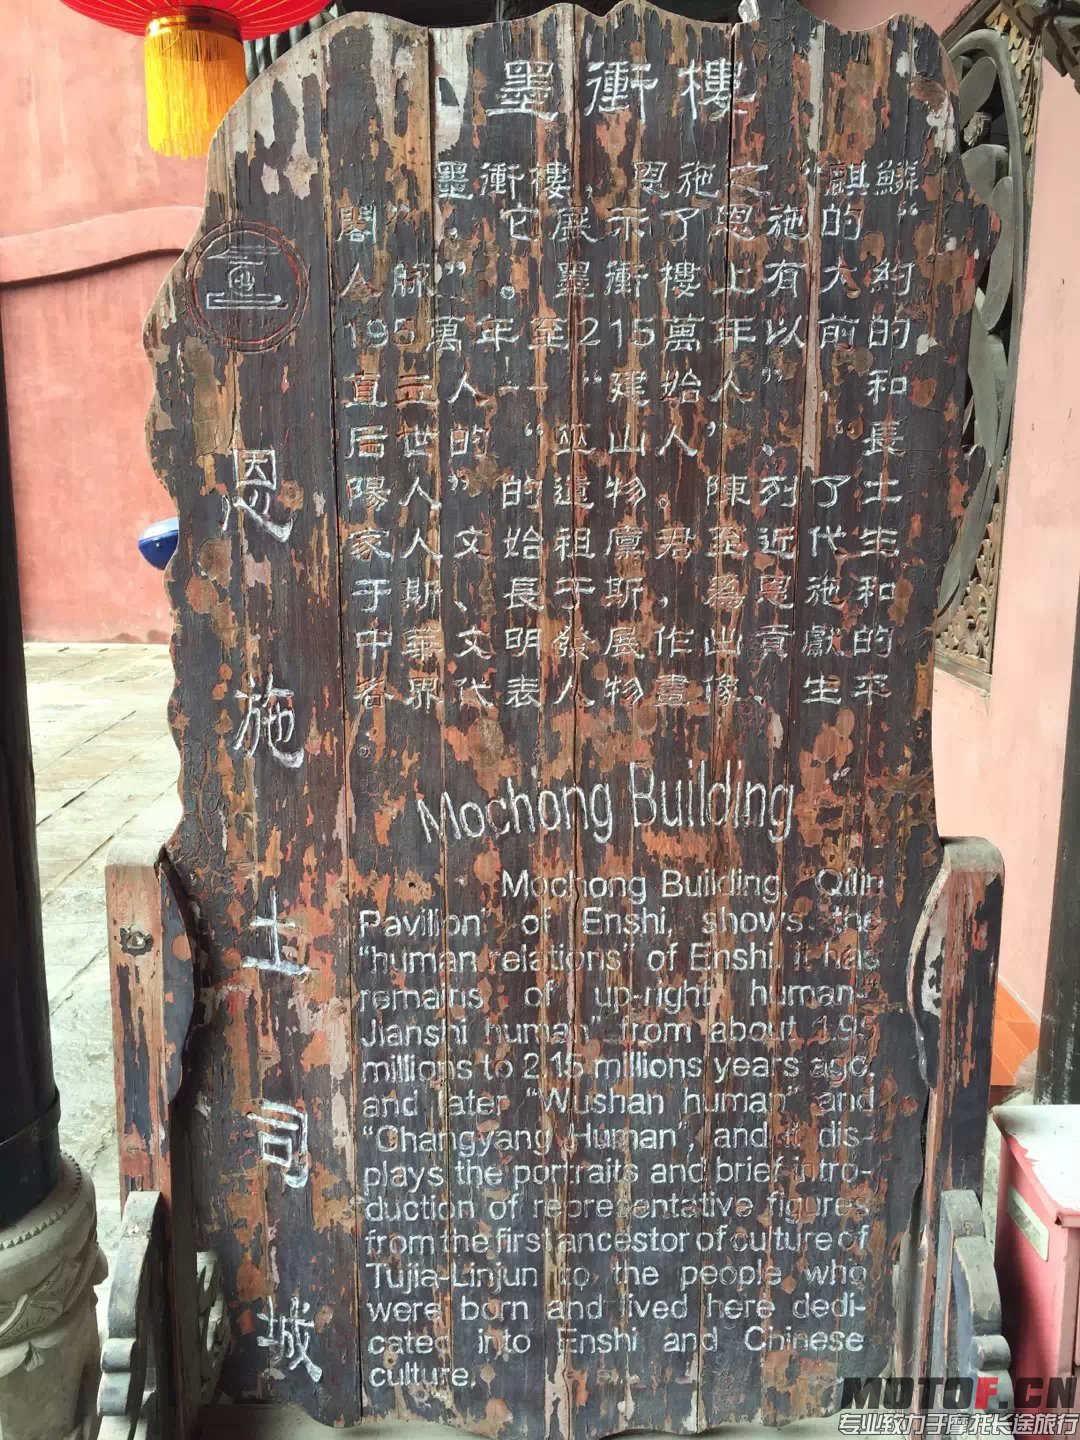 墨衝樓
墨衝樓，恩施之“麒鱗
閣”，它展示了恩施的“
人脈”。墨衝樓上有大約
195萬年至215萬年以前的
直立人一“建始人”，和
后世的“巫山人”、“長
陽人”的遺物。陳列了土
家人文始祖廩君至近代生
于斯、長于斯，為恩施和
中華文明發展作出貢獻的
各界代表人物畫像、生平
。
恩施土司城
Mochong Building
Mochong Building, “Qilin
Pavilion” of Enshi, shows the
“human relations” of Enshi. it has
remains of up-right human-“
Jianshi human” from about 1.95
millions to 2.15 millions years ago,
and later “Wushan human” and
“Changyang Human”, and it dis-
plays the portraits and brief intro-
duction of representative figures
from the first ancestor of culture of
Tujia-Linjun to the people who
were born and lived here dedi-
cated into Enshi and Chinese
culture.
MOTOF.CN
专业致力于摩托长途旅行